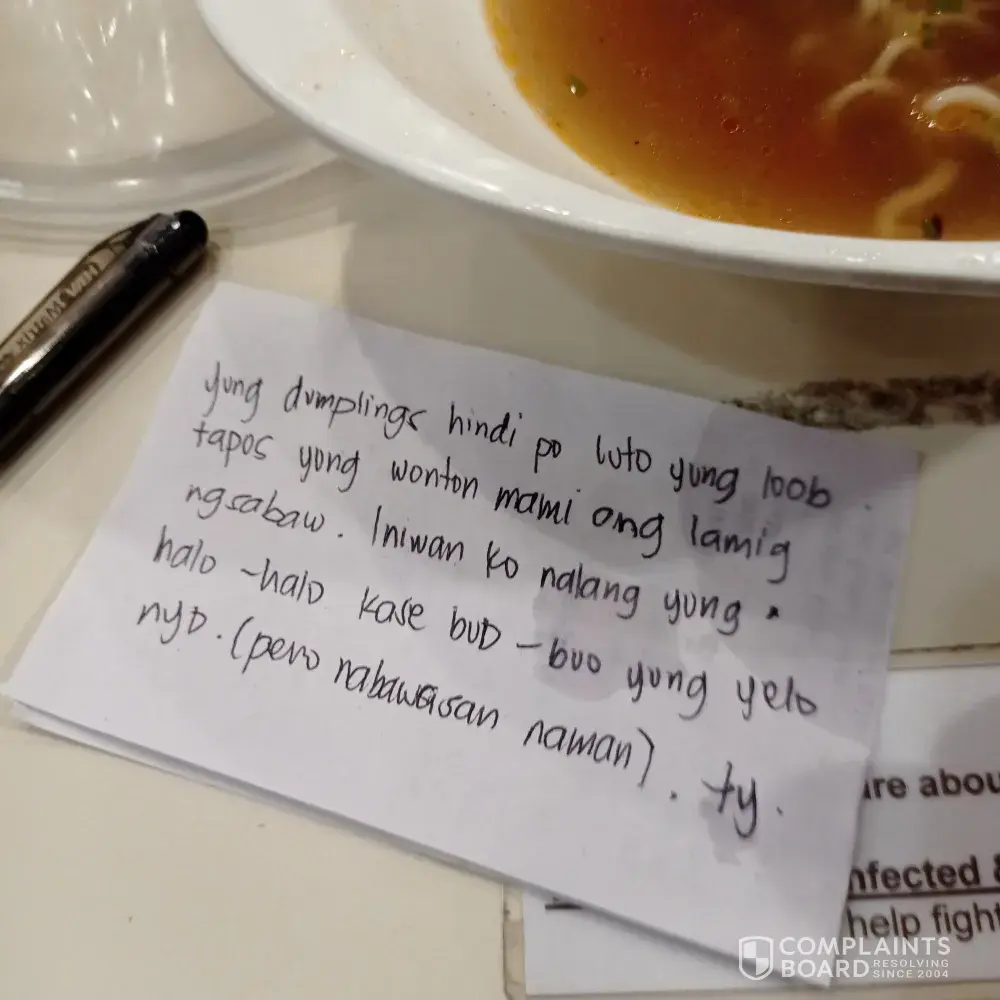 yung dumplings hindi po luto yung loob.
tapos yung wonton mami ang lamig
ngsabaw. Iniwan ko nalang yung
halo-halo kase buo-buo yung yelo
nyo. (pero nabawasan naman). ty.
are abou
nfected &
help fight
COMPLAINTS
BOARD RESOLVING
SINCE 2004